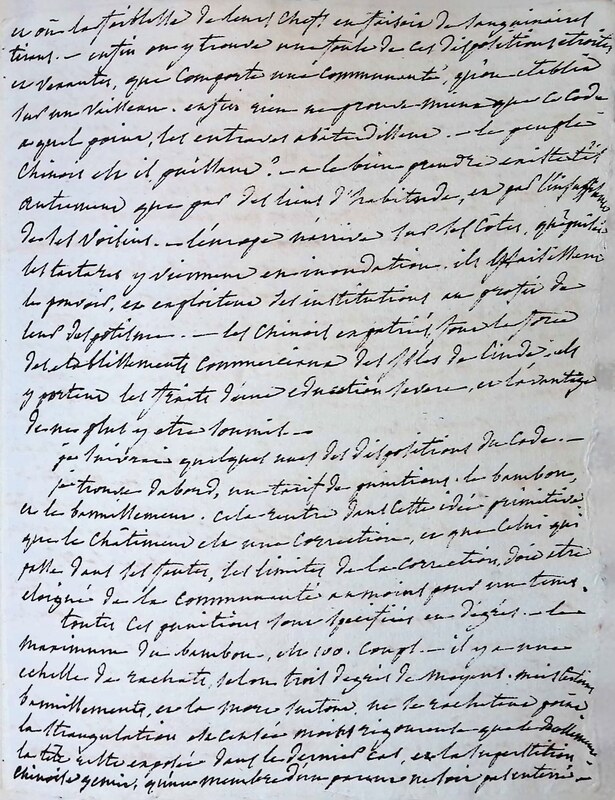 et où la faiblesse de leurs chefs en faisoit de sanguinaires
tirans. — enfin on y trouve une foule de ces dispositions étroites
et que comporte une communauté, qu'on établira
sur un vaisseau. enfin rien ne prouve mieux que ce code
a quel point, les entraves abâtardissent. — le peuple
chinois est il puissant ? — a le bien prendre existe t'il
autrement que par des liens d'habitude, et par
de ses voisins. — l'europe n'arrive sur ses côtes,
les tartares y viennent en inondation. ils
le pouvoir, et exploitent des institutions au profit de
leur despotisme. — les chinois expatriés, sont la force
des établissements commerciaux des isles de l'inde. ils
y portent les fruits d'une education severe, et l'avantage
de ne plus y etre soumis —
je suivrai quelques unes des dispositions du code. —
je trouve d'abord, un tarif de punitions. le bambou,
et le bannissement. cela rentre dans cette idée primitive
que le chatiment est une correction, et que celui qui
passe dans ses fautes, les limites de la correction, doit etre
eloigné de la communauté au moins pour un tems.
toutes ces punitions sont specifiées en degrés. — le
maximum du bambou, est 100. coups. — il y a une
echelle de rachats, selon trois degrés de moyens. mais certains
bannissements, et la mort surtout, ne se rachetent point
la strangulation est censée moins rigoureuse que la
la tête reste exposée dans le dernier cas, et la superstition
chinoise gemit, qu'un membre d'un parent ne soit pas enterré —